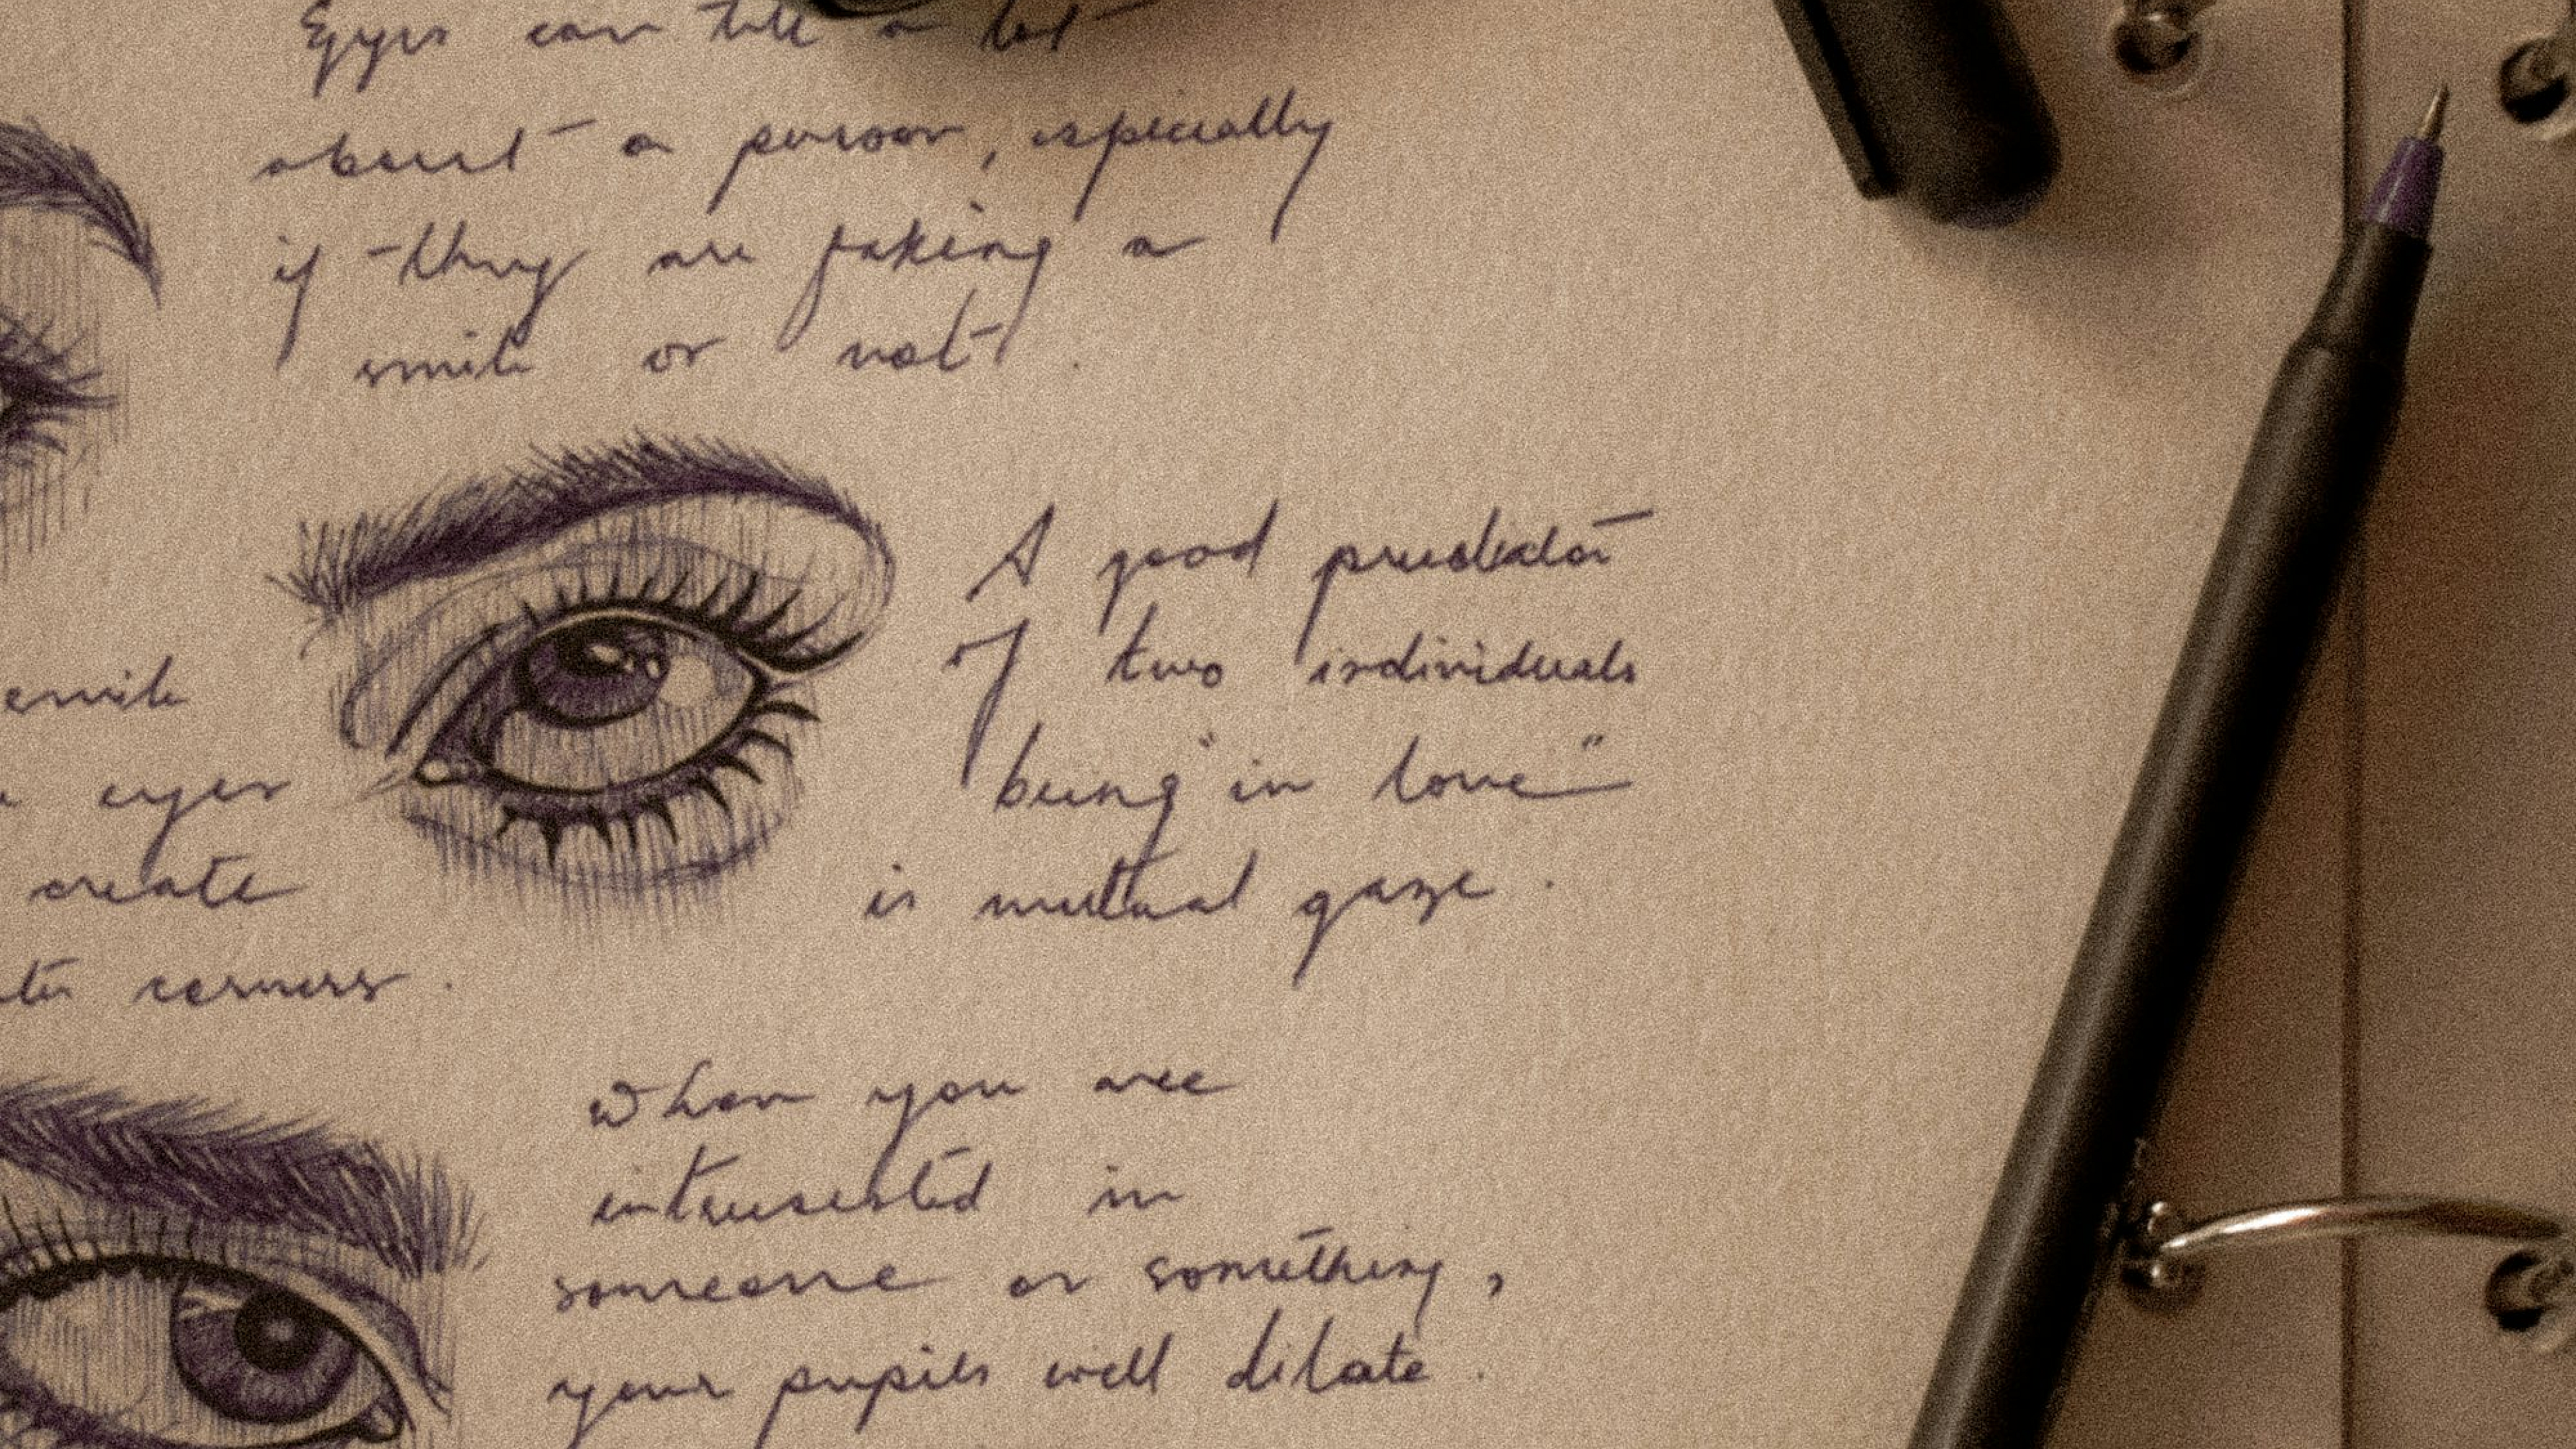 Eyes can tell a lot
about a person, especially
if they are faking a
smile or not.
smile
eyes
create
corners.
A good predictor
of two individuals
being "in love"
is mutual gaze.
When you are
interested in
someone or something,
your pupils will dilate.